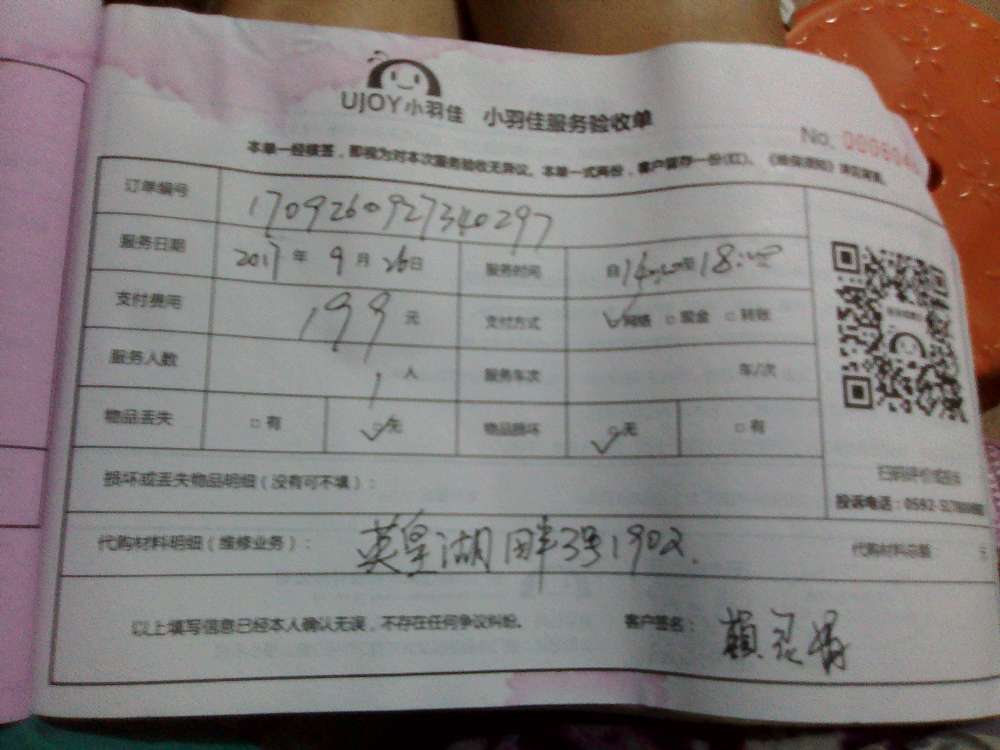 UJOY小羽佳 小羽佳服务验收单
No.
本单一经核签，即视为对本次服务验收无异议。本单一式两份，客户留存一份(红)、
订单编号 1709260927340297
服务日期 2017年9月26日 服务时间 自14:00至18:00
支付费用 199元 支付方式 网络 □现金 □转账
服务人数 1人 服务车次 车/次
物品丢失 □有 □无 物品损坏 □无 □有
损坏或丢失物品明细（没有可不填）：
扫码评价或投诉
投诉电话：0592-
代购材料明细（维修业务）： 英皇湖畔3号1902. 代购材料总额： 元
以上填写信息已经本人确认无误，不存在任何争议纠纷。 客户签名： 赖